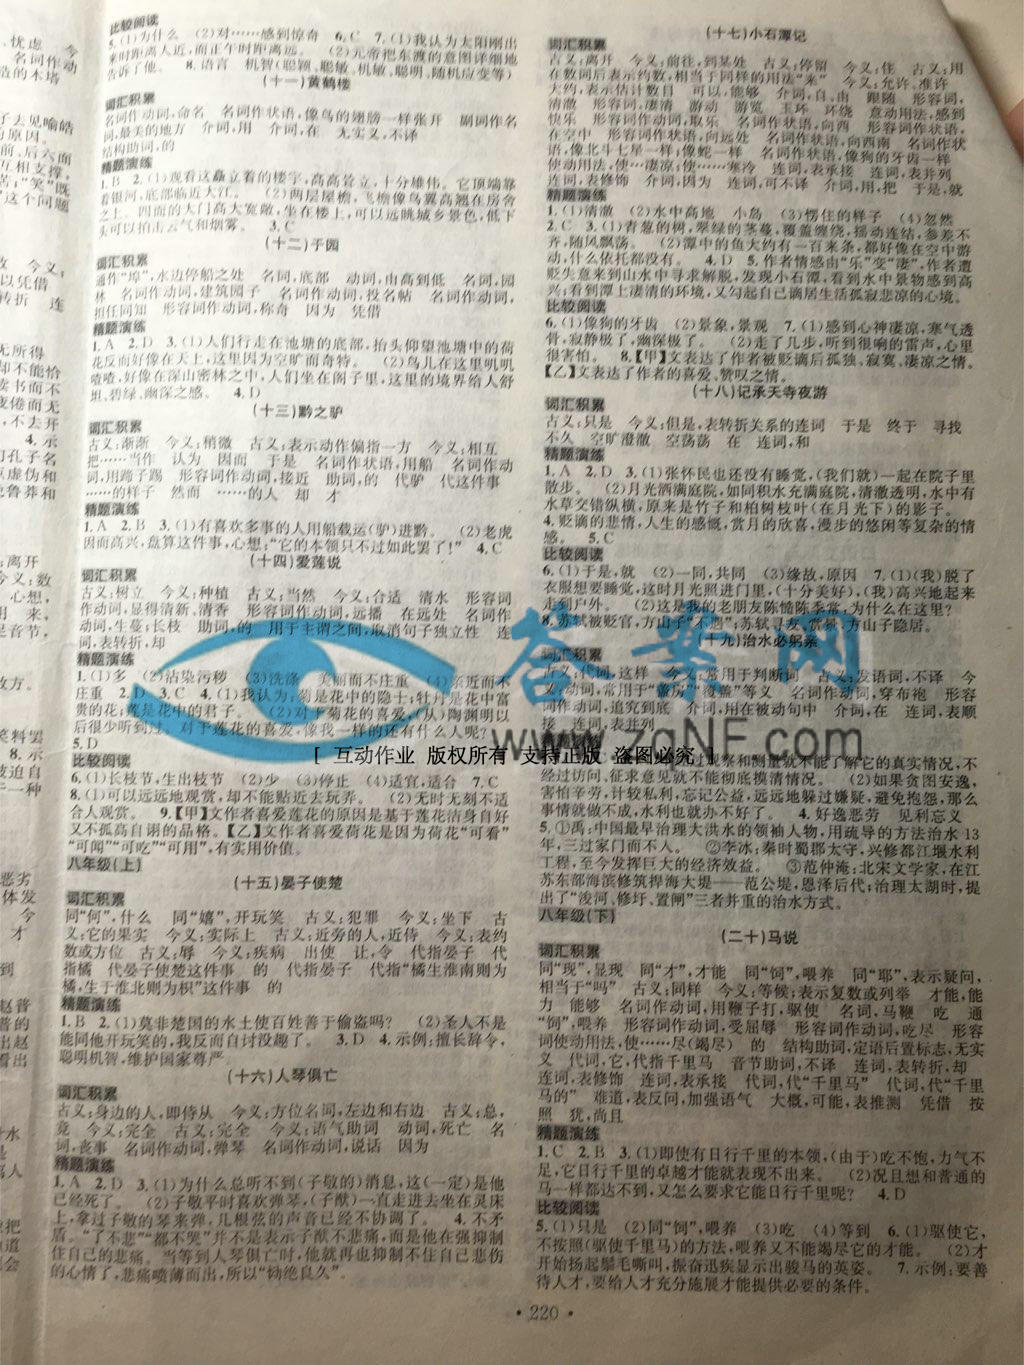 比较阅读
5.(1)为什么 (2)对……感到惊奇 6.C 7.(1)我认为太阳刚出
来时距离人近,而正午时距离远。 (2)元帝把东渡的意图详细地
告诉了他。 8.语言 机智(聪颖、聪敏、机敏、聪明、随机应变等)
(十一)黄鹤楼
词汇积累
名词作动词,命名 名词作状语,像鸟的翅膀一样张开 副词作名
词,最美的地方 介词,用 介词,在 无实义,不译
结构助词,的
精题演练
1.B 2.(1)观看这矗立着的楼宇,高高耸立,十分雄伟。它顶端靠
着银河,底部临近大江。 (2)两层屋檐,飞檐像鸟翼高翘在房舍
之上。四面的大门高大宽敞,坐在楼上,可以远眺城乡景色,低下
头可以拍击云气和烟雾。 3.C
(十二)于园
词汇积累
通作"埠",水边停船之处 名词,底部 动词,由高到低 名词,园
林 名词作动词,建筑园子 名词作动词,投名帖 名词作动词,
担任同知 形容词作动词,称奇 因为 凭借
精题演练
1.A 2.D 3.(1)人们行走在池塘的底部,抬头仰望池塘中的荷
花反而好像在天上,这里因为空旷而奇特。 (2)鸟儿在这里叽叽
喳喳,好像在深山密林之中,人们坐在阁子里,这里的境界给人舒
坦、碧绿、幽深之感。 4.D
(十三)黔之驴
词汇积累
古义:渐渐 今义:稍微 古义:表示动作偏指一方 今义:相互
把……当作 认为 因而 于是 名词作状语,用船 名词作动
词,用蹄子踢 形容词作动词,接近 助词,的 代驴 代这件事
……的样子 然而 ……的人 却 才
精题演练
1.A 2.B 3.(1)有喜欢多事的人用船载运(驴)进黔。 (2)老虎
因而高兴,盘算这件事,心想:"它的本领只不过如此罢了!" 4.C
(十四)爱莲说
词汇积累
古义:树立 今义:种植 古义:当然 今义:合适 清水 形容词
作动词,显得清新、清香 形容词作动词,远播 在远处 名词作
动词,生蔓;长枝 助词,的 用于主谓之间,取消句子独立性 连
词,表转折,却
精题演练
1.(1)多 (2)沾染污秽 (3)洗涤 美丽而不庄重 (4)亲近而不
庄重 2.D 3.C 4.(1)我认为:菊是花中的隐士;牡丹是花中富
贵的花;莲是花中的君子。 (2)对于菊花的喜爱,(从)陶渊明以
后很少听到过。对于莲花的喜爱,像我一样的还有什么人呢?
5.D
比较阅读
6.(1)长枝节,生出枝节 (2)少 (3)停止 (4)适宜,适合 7.C
8.(1)可以远远地观赏,却不能贴近去玩弄。 (2)无时无刻不适
合人观赏。 9.【甲】文作者喜爱莲花的原因是基于莲花洁身自好
又不孤高自诩的品格。【乙】文作者喜爱荷花是因为荷花"可看"
"可闻""可吃""可用",有实用价值。
八年级(上)
(十五)晏子使楚
词汇积累
同"何",什么 同"嬉",开玩笑 古义:犯罪 今义:坐下 古
义:它的果实 今义:实际上 古义:近旁的人,近侍 今义:表约
数或方位 古义:辱 今义:疾病 出使 让,令 代指晏子 代
指橘 代晏子使楚这件事 的 代指晏子 代指"橘生淮南则为
橘,生于淮北则为枳"这件事 的
精题演练
1.B 2.(1)莫非楚国的水土使百姓善于偷盗吗? (2)圣人不是
能同他开玩笑的,我反而自讨没趣了。 3.D 4.示例:擅长辞令,
聪明机智,维护国家尊严。
(十六)人琴俱亡
词汇积累
古义:身边的人,即侍从 今义:方位名词,左边和右边 古义:总,
竟 今义:完全 古义:完全 今义:语气助词 动词,死亡 名
词,丧事 名词作动词,弹琴 名词作动词,说话 因为
精题演练
1.A 2.D 3.(1)为什么总听不到(子敬的)消息,这(一定)是他
已经死了。 (2)子敬平时喜欢弹琴,(子猷)一直走进去坐在灵床
上,拿过子敬的琴来弹,几根弦的声音已经不协调了。 4.不矛
盾。"了不悲""都不哭"并不是表示子猷不悲痛,而是他在强抑制
住自己的悲痛。当等到人琴俱亡时,他就再也抑制不住自己悲伤
的心情了,悲痛喷薄而出,所以"恸绝良久"。
(十七)小石潭记
词汇积累
古义:离开 今义:前往,到某处 古义:停留 今义:住 古义:用
在数词后表示约数,相当于同样的用法"来" 今义:允许、准许
大约,表示估计数目 可以,能够 介词,自,由 跟随 形容词,
清澈 形容词,凄清 游动 游览 玉环 环绕 意动用法,感到
快乐 形容词作动词,取乐 名词作状语,向西 形容词作状语,
在空中 形容词作状语,向远处 名词作状语,向西南 名词作状
语,像北斗七星一样;像蛇一样 名词作状语,像狗的牙齿一样
使动用法,使…凄凉;使……寒冷 连词,表承接 连词,表并列
连词,表修饰 介词,因为 连词,可不译 介词,用,把 于是,就
精题演练
1.(1)清澈 (2)水中高地 小岛 (3)愣住的样子 (4)忽然
2.C 3.(1)青葱的树,翠绿的茎蔓,覆盖缠绕,摇动连结,参差不
齐,随风飘荡。 (2)潭中的鱼大约有一百来条,都好像在空中游
动,什么依托都没有。 4.D 5.作者情感由"乐"变"凄",作者遭
贬失意来到山水中寻求解脱,发现小石潭,看到水中景物感到高
兴;看到潭上凄清的环境,又勾起自己谪居生活孤寂悲凉的心境。
比较阅读
6.(1)像狗的牙齿 (2)景象,景观 7.(1)感到心神凄凉,寒气透
骨,寂静极了,幽深极了。 (2)走了几步,听到很响的雷声,心里
很害怕。 8.【甲】文表达了作者被贬谪后孤独、寂寞、凄凉之情。
【乙】文表达了作者的喜爱、赞叹之情。
(十八)记承天寺夜游
词汇积累
古义:只是 今义:但是,表转折关系的连词 于是 终于 寻找
不久 空旷澄澈 空荡荡 在 连词,和
精题演练
1.A 2.D 3.(1)张怀民也还没有睡觉,(我们就)一起在院子里
散步。 (2)月光洒满庭院,如同积水充满庭院,清澈透明,水中有
水草交错纵横,原来是竹子和柏树枝叶(在月光下)的影子。
4.贬谪的悲情,人生的感慨,赏月的欣喜,漫步的悠闲等复杂的情
感。 5.C
比较阅读
6.(1)于是,就 (2)一同,共同 (3)缘故,原因 7.(1)(我)脱了
衣服想要睡觉,这时月光照进门里,(十分美好),(我)高兴地起来
走到户外。 (2)这是我的老朋友陈慥陈季常,为什么在这里?
8.苏轼被贬官,方山子"不遇";苏轼寻友、赏景,方山子隐居。
(十九)治水必躬亲
词汇积累
古义:代词,这样 今义:常用于判断词 古义:发语词,不译 今
义:动词,常用于"盖房""覆盖"等义 名词作动词,穿布袍 形容
词作动词,追究到底 介词,用在被动句中 介词,在 连词,表顺
接 连词,表并列
过观察和测量就不能了解它的真实情况,不
经过访问,征求意见就不能彻底摸清情况。 (2)如果贪图安逸,
害怕辛劳,计较私利,忘记公益,远远地躲过嫌疑,避免抱怨,那么
事情就做不成,水利也就办不好了。 4.好逸恶劳 见利忘义
5.①禹:中国最早治理大洪水的领袖人物,用疏导的方法治水13
年,三过家门而不入。 ②李冰:秦时蜀郡太守,兴修都江堰水利
工程,至今发挥巨大的经济效益。 ③范仲淹:北宋文学家,在江
苏东部海滨修筑捍海大堤——范公堤,恩泽后代;治理太湖时,提
出了"浚河、修圩、置闸"三者并重的治水方式。
八年级(下)
(二十)马说
词汇积累
同"现",显现 同"才",才能 同"饲",喂养 同"耶",表示疑问,
相当于"吗" 古义:同样 今义:等候;表示复数或列举 才能,能
力 能够 名词作动词,用鞭子打,驱使 名词,马鞭 吃 通
"饲",喂养 形容词作动词,受屈辱 形容词作动词,吃尽 形容
词使动用法,使……尽(竭尽) 的 结构助词,定语后置标志,无实
义 代词,它,代指千里马 音节助词,不译 连词,表转折,却
连词,表修饰 连词,表承接 代词,代"千里马" 代词,代"千里
马的" 难道,表反问,加强语气 大概,可能,表推测 凭借 按
照 犹,尚且
精题演练
1.C 2.B 3.(1)即使有日行千里的本领,(由于)吃不饱,力气不
足,它日行千里的卓越才能就表现不出来。 (2)况且想和普通的
马一样都达不到,又怎么要求它能日行千里呢? 4.D
比较阅读
5.(1)只是 (2)同"饲",喂养 (3)吃 (4)等到 6.(1)驱使它,
不按照(驱使千里马)的方法,喂养又不能竭尽它的才能。 (2)才
开始扬起鬃毛嘶叫,振奋迅疾显示出骏马的英姿。 7.示例:要善
待人才,要给人才充分施展才能提供必要的条件。
·220·
答案网
www.zqNF.com
[ 互动作业 版权所有 支持正版 盗图必究 ]